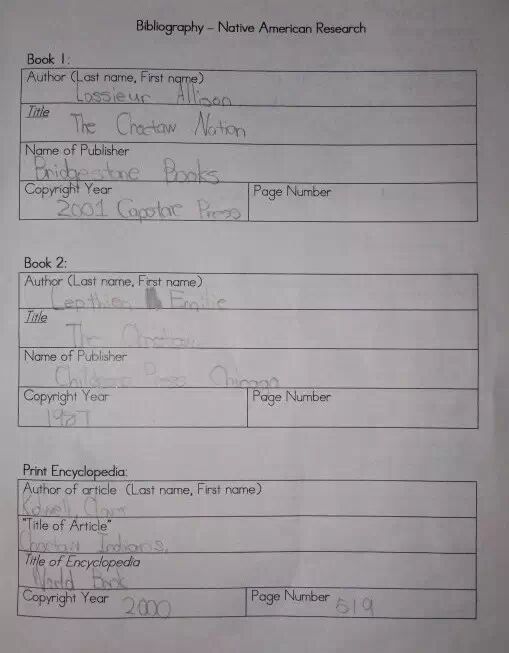 Bibliography – Native American Research
Book 1:
Author (Last name, First name)
Lossieur Allison
Title
The Choctaw Nation
Name of Publisher
Bridgestone Books
Copyright Year
Page Number
2001 Capstone Press
Book 2:
Author (Last name, First name)
Lepthien Emilie
Title
The Choctaw
Name of Publisher
Childrens Press Chicago
Copyright Year
Page Number
1987
Print Encyclopedia:
Author of article (Last name, First name)
Title of Article"
Choctaw Indians.
Title of Encyclopedia
World Book
Copyright Year 2000
Page Number 519